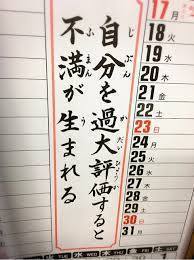 自分を過大評価すると
じ ぶん か だいひょう か
不満が生まれる
ふ まん う
17 月
18 火
19 水
20 木
21 金
22 土
23 日
24 月
25 火
26 水
27 木
28 金
29 土
30 日
31
TUE WED THU FRI SAT